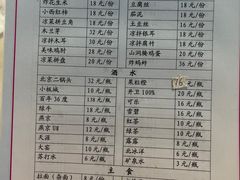 炸花生米 18元/份 豆腐丝 18元/份
小西红柿 18元/份 茄泥 18元/份
凉菜拼三角 32元/份 土豆丝 16元/份
木兰芽 32元/份 凉拌木耳 26元/份
凉拌木耳 30元/份 凉拌腐竹 18元/份
美味鸡肘 28元/份 山间腌鸡蛋 20元/份
凉菜拼盘 20元/份 炸蚂蚱 36元/份
酒水
北京二锅头 32元/瓶 果粒橙 16元/瓶
小板城 10元/瓶 外卫100% 20元/瓶
百年 38度 138元/瓶 可乐 16元/瓶
绿牛 18元/瓶 雪碧 16元/瓶
燕京 8元/瓶 红茶 6元/瓶
燕京U8 12元/瓶 绿茶 6元/瓶
天涯 6元/瓶 露露 6元/瓶
大窑 10元/瓶 北冰洋 6元/瓶
苏打水 6元/瓶 矿泉水 3元/瓶
主食